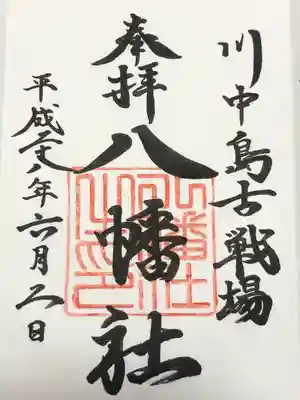 川中島古戦場
奉拝
八幡社
平成二十八年六月 日